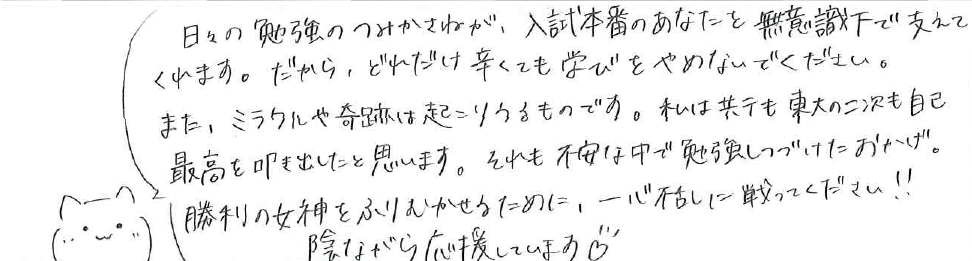 日々の勉強のつみかさねが、入試本番のあなたを無意識下で支えて
くれます。だから、どれだけ辛くても学びをやめないでください。
また、ミラクルや奇跡は起こりうるものです。私は共テも東大の二次も自己
最高を叩き出したと思います。それも不安な中で勉強しつづけたおかげ。
勝利の女神をふりむかせるために、一心不乱に戦ってください!!
陰ながら応援しています